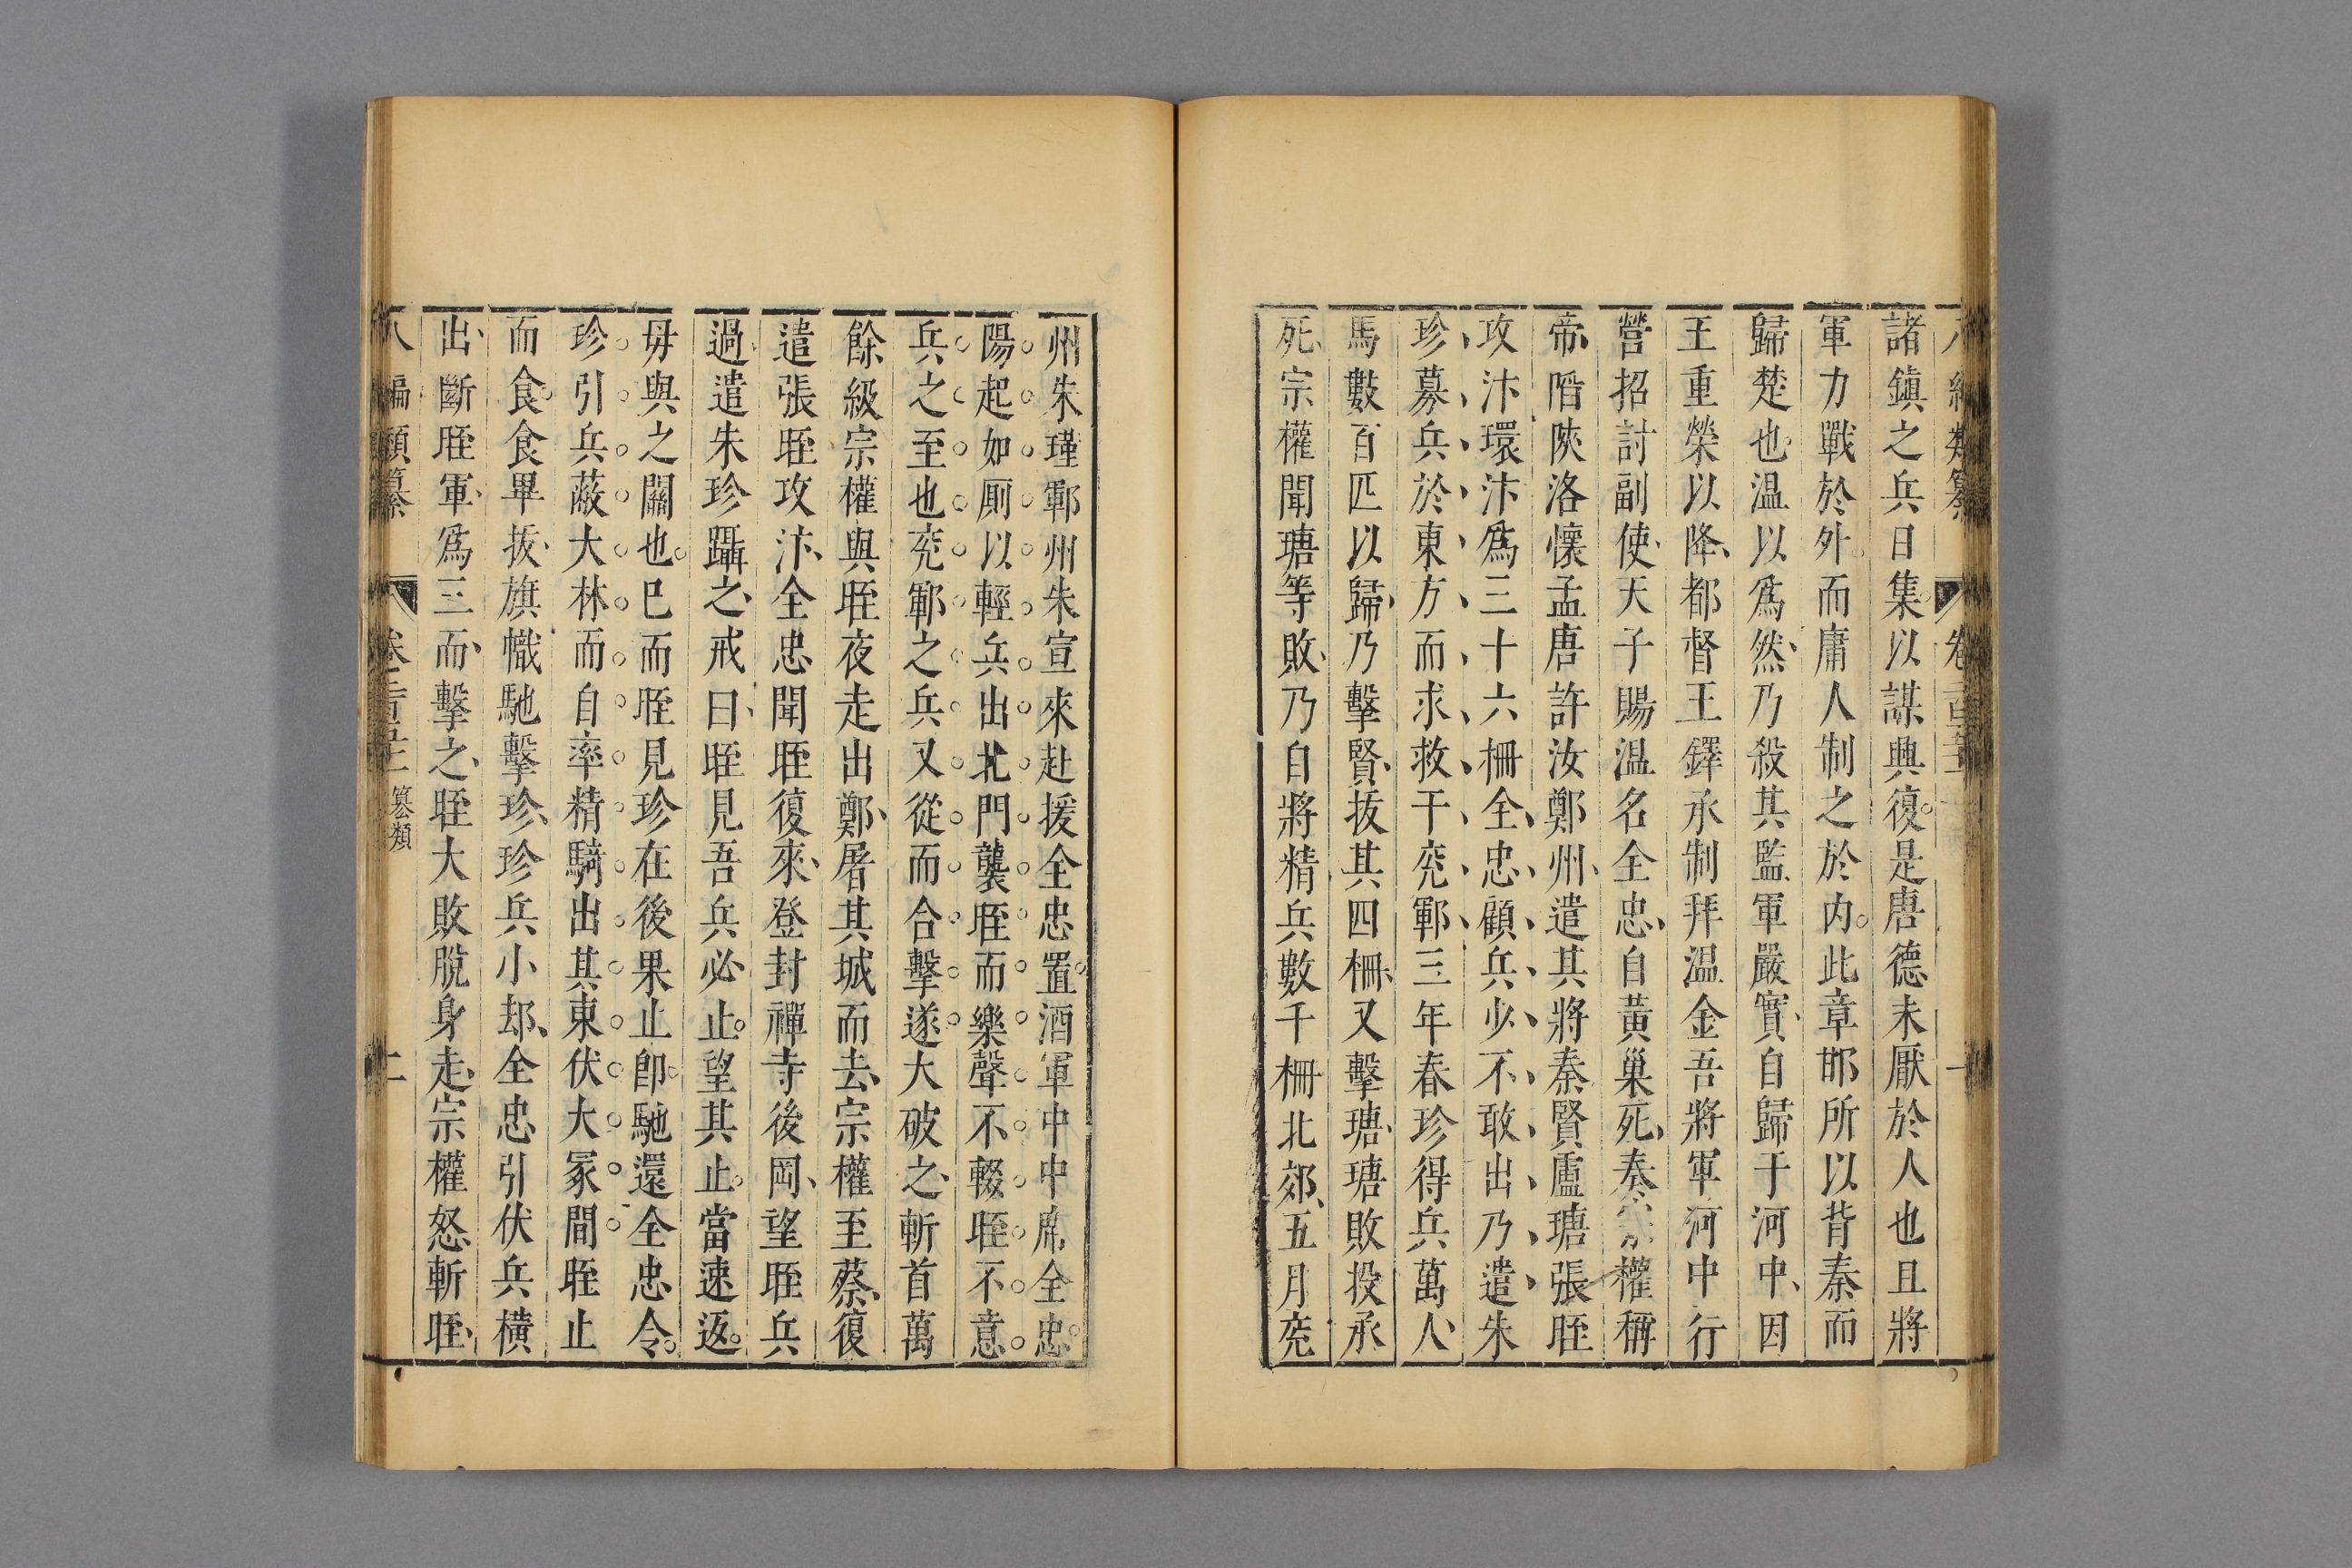 諸鎮之兵日集以謀興復是唐德未厭於人也且將
軍力戰於外而庸人制之於內此章邯所以背秦而
歸楚也温以爲然乃殺其監軍嚴實自歸于河中因
王重榮以降都督王鐸承制拜温金吾將軍河中行
營招討副使天子賜温名全忠自黃巢死秦宗權稱
帝陷陝洛懷孟唐許汝鄭州遣其將秦賢盧瑭張晊
攻汴環汴爲三十六柵全忠顧兵少不敢出乃遣朱
珍募兵於東方而求救于兖鄆三年春珍得兵萬人
馬數百匹以歸乃擊賢拔其四柵又擊瑭瑭敗投承
死宗權聞瑭等敗乃自將精兵數千柵北郊五月兖
州朱瑾鄆州朱宣來赴援全忠置酒軍中中席全忠
陽起如厠以輕兵出北門襲晊而樂聲不輟晊不意
兵之至也兖鄆之兵又從而合擊遂大破之斬首萬
餘級宗權與晊夜走出鄭屠其城而去宗權至蔡復
遣張晊攻汴全忠聞晊復來登封禪寺後岡望晊兵
過遣朱珍躡之戒曰晊見吾兵必止望其止當速返
毋與之鬬也已而晊見珍在後果止卽馳還全忠令
珍引兵蔽大林而自率精騎出其東伏大冢間晊止
而食食畢拔旗幟馳擊珍珍兵小却全忠引伏兵橫
出斷晊軍爲三而擊之晊大敗脫身走宗權怒斬晊
八編類纂 卷 纂類 二